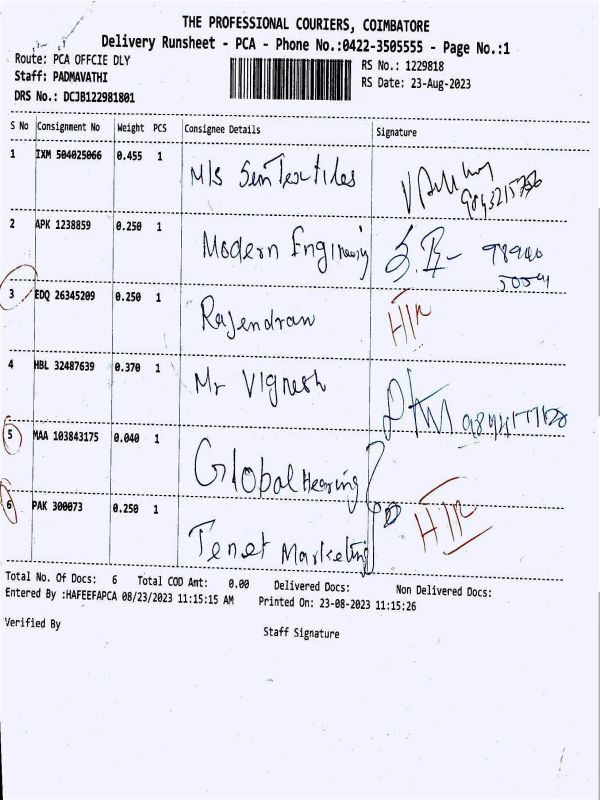 THE PROFESSIONAL COURIERS, COIMBATORE
Delivery Runsheet - PCA - Phone No.:0422-3505555 - Page No.:1
Route: PCA OFFCIE DLY
RS No.: 1229818
Staff: PADMAVATHI
RS Date: 23-Aug-2023
DRS No.: DCJB122981801
S No Consignment No Weight PCS Consignee Details Signature
1 IXM 504025066 0.455 1 M/s Sem Textiles
2 APK 1238859 0.250 1 Modern Engineering
3 EDQ 26345209 0.250 1 Rajendran
4 HBL 32487639 0.370 1 Mr Vignesh
5 MAA 103843175 0.040 1 Global Hearing
6 PAK 300073 0.250 1 Tenet Marketing
Total No. Of Docs: 6 Total COD Amt: 0.00 Delivered Docs: Non Delivered Docs:
Entered By :HAFEEFAPCA 08/23/2023 11:15:15 AM Printed On: 23-08-2023 11:15:26
Verified By Staff Signature